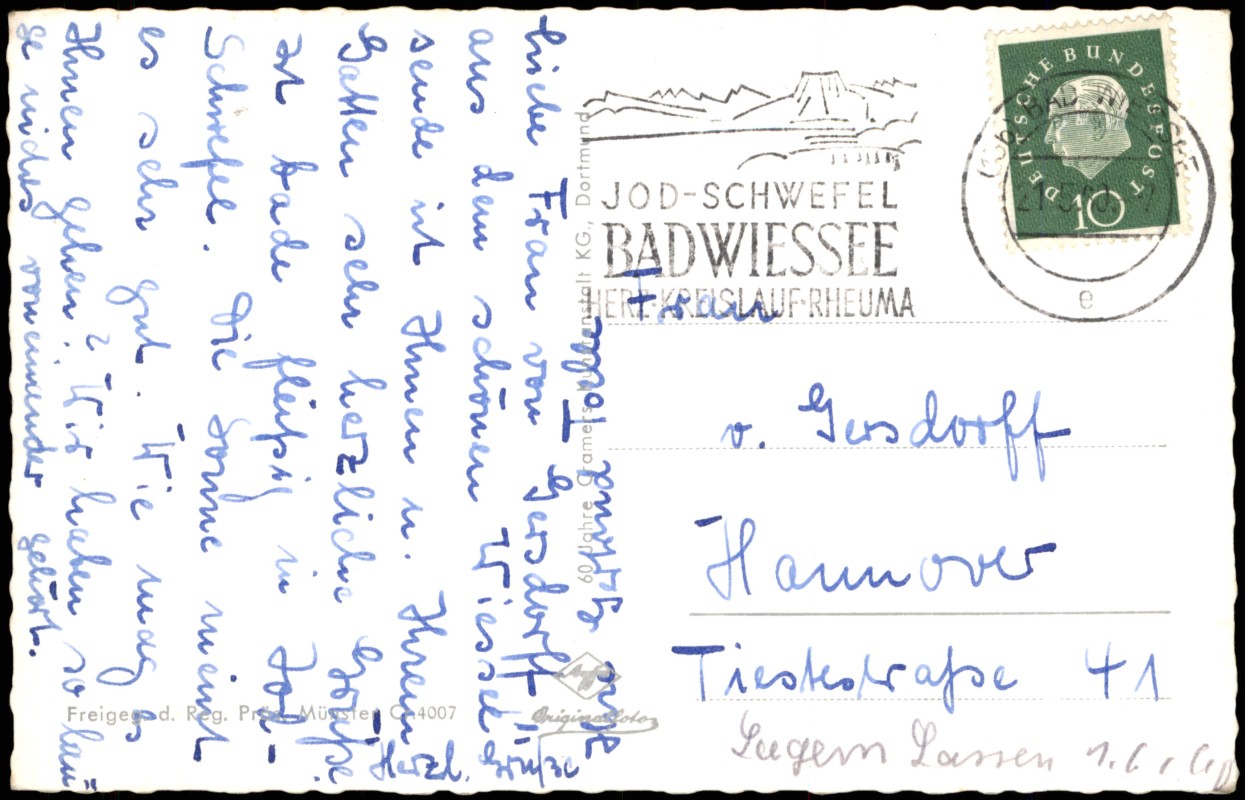 Liebe Frau von Gersdorff!
aus dem schönen Wiessee
sende ich Ihnen u. Ihrem
Gatten sehr herzliche Grüße.
Ich bade fleißig in Jod-
Schwefel. Die Sonne meint
es sehr gut. Wie mag es
Ihnen gehen? Wir haben so lan-
ge nichts voneinander gehört.
Herzl. Grüße
60 Jahre Cramers Kunstanstalt KG., Dortmund
JOD-SCHWEFEL
BAD WIESSEE
HERZ-KREISLAUF-RHEUMA
DEUTSCHE BUNDESPOST
10
BAD WIESSEE
e
Frau
v. Gersdorff
Hannover
Tiestestraße 41
Lassen
Freigeg. d. Reg. Präs. Münster Cr.4007
Agfa
Originalfoto